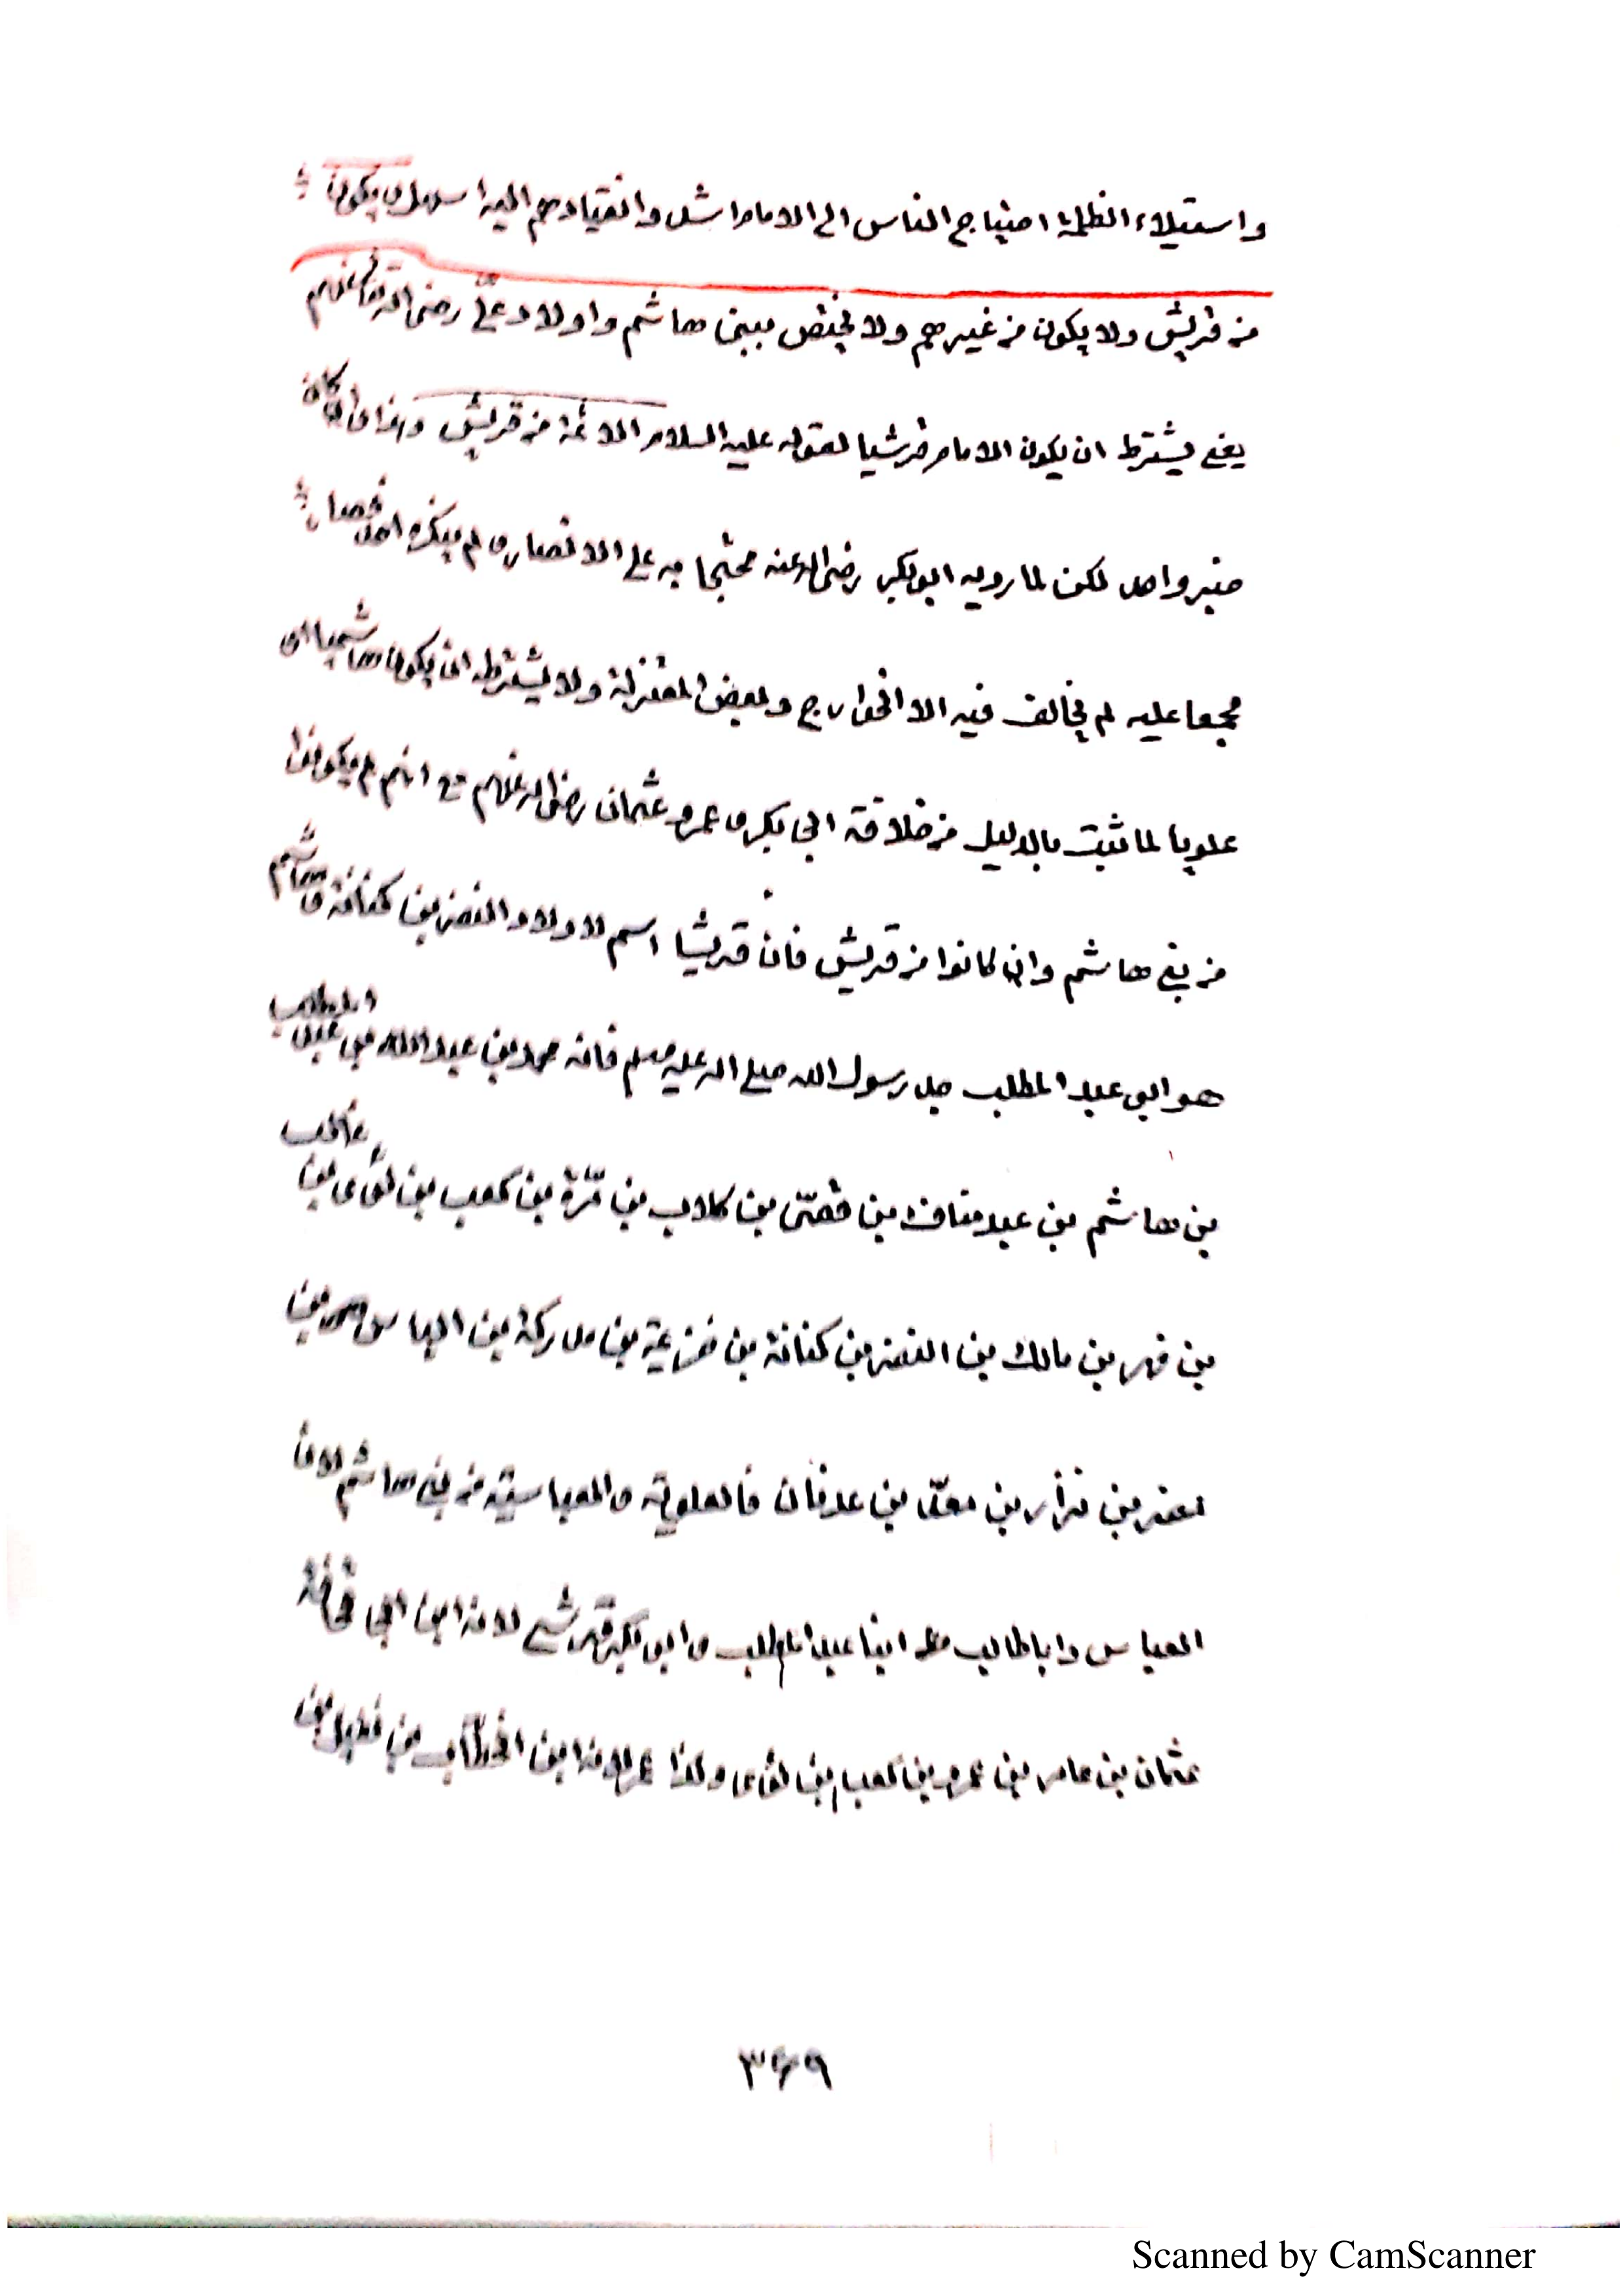 واستيلاء الظلمة احتياج الناس الى الامام اشد وانقيادهم اليه اسهل ويكون
من قريش ولا يكون من غيرهم ولا يختص ببنى هاشم واولاد علىّ رضى الله تعالى عنهم
يعنى يشترط ان يكون الامام قرشيا لقوله عليه السلام الائمة من قريش وهذا وان كان
خبر واحد لكن لما رويه ابو بكر رضى الله عنه محتجا به على الانصار ولم ينكره احد فصار
مجمعا عليه لم يخالف فيه الا الخوارج وبعض المعتزلة ولا يشترط ان يكون هاشميا او
علويا لما ثبت بالدليل من خلافة ابى بكر وعمر وعثمان رضى الله عنهم مع انهم لم يكونوا
من بنى هاشم وان كانوا من قريش فان قريشا اسم لاولاد النضر بن كنانة وهاشم
هو ابو عبد المطلب جد رسول الله صلى الله عليه وسلم فانه محمد بن عبد الله بن عبد المطلب
بن هاشم بن عبد مناف بن قصىّ بن كلاب بن مرّة بن كعب بن لؤى بن غالب
بن فهر بن مالك بن النضر بن كنانة بن خزيمة بن مدركة بن الياس بن
مضر بن نزار بن معدّ بن عدنان فالعلوية والعباسيّة من بنى هاشم لان
العباس وابا طالب ابنا عبد المطلب وابو بكر قرشى لانه ابن ابى قحافة
عثمان بن عامر بن عمرو بن كعب بن لؤى وكذا عمر لانه ابن الخطّاب بن نفيل بن
٣٦٩
Scanned by CamScanner